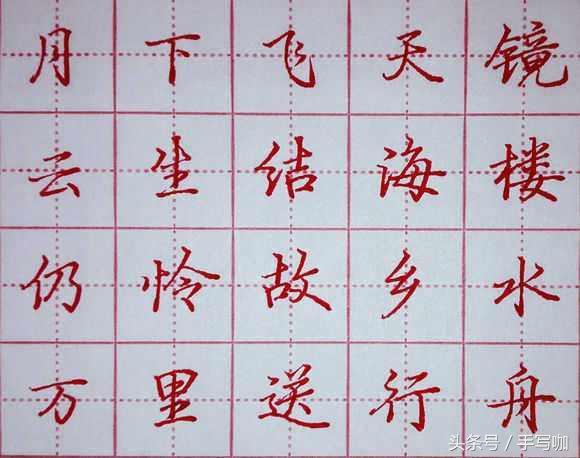 月下飞天镜
云生结海楼
仍怜故乡水
万里送行舟
头条号 / 手写咖